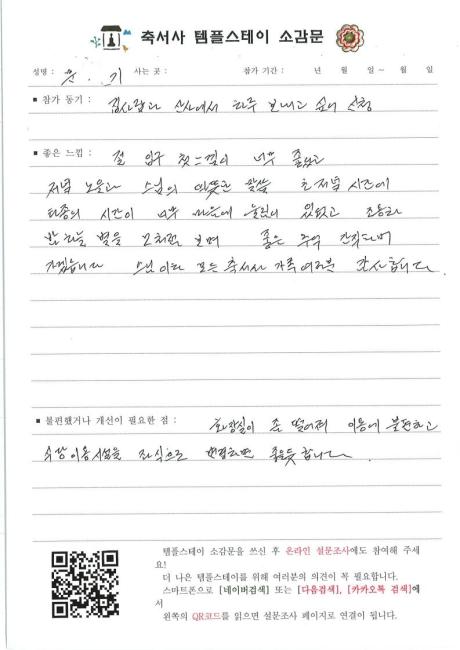 축서사 템플스테이 소감문
성명 : 윤 . 기 사는 곳 : 참가 기간 : 년 월 일 ~ 월 일
■ 참가 동기 : 집사람과 산사에서 하루 보내고 싶어 신청
■ 좋은 느낌 : 절 입구 첫느낌이 너무 좋았고
저녁 노을과 스님의 따뜻한 말씀 초저녁 시간에
타종의 시간이 너무 마음에 울림이 있었고 조용히
밤하늘 별을 보며 좋은 추억 간직하며
가겠습니다 스님 이하 모든 축서사 가족여러분 감사합니다.
■ 불편했거나 개선이 필요한 점 : 화장실이 좀 떨어져 이용에 불편하고
수장이용시설을 좌식으로 변경하면 좋을듯 합니다.
템플스테이 소감문을 쓰신 후 온라인 설문조사에도 참여해 주세
요!
더 나은 템플스테이를 위해 여러분의 의견이 꼭 필요합니다.
스마트폰으로 [네이버검색] 또는 [다음검색], [카카오톡 검색]에
서
왼쪽의 QR코드를 읽으면 설문조사 페이지로 연결이 됩니다.